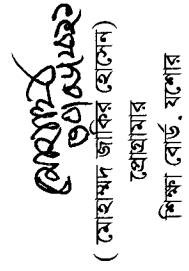 ( মোহাম্মদ জাকির হোসেন)
প্রোগ্রামার
শিক্ষা বোর্ড, যশোর